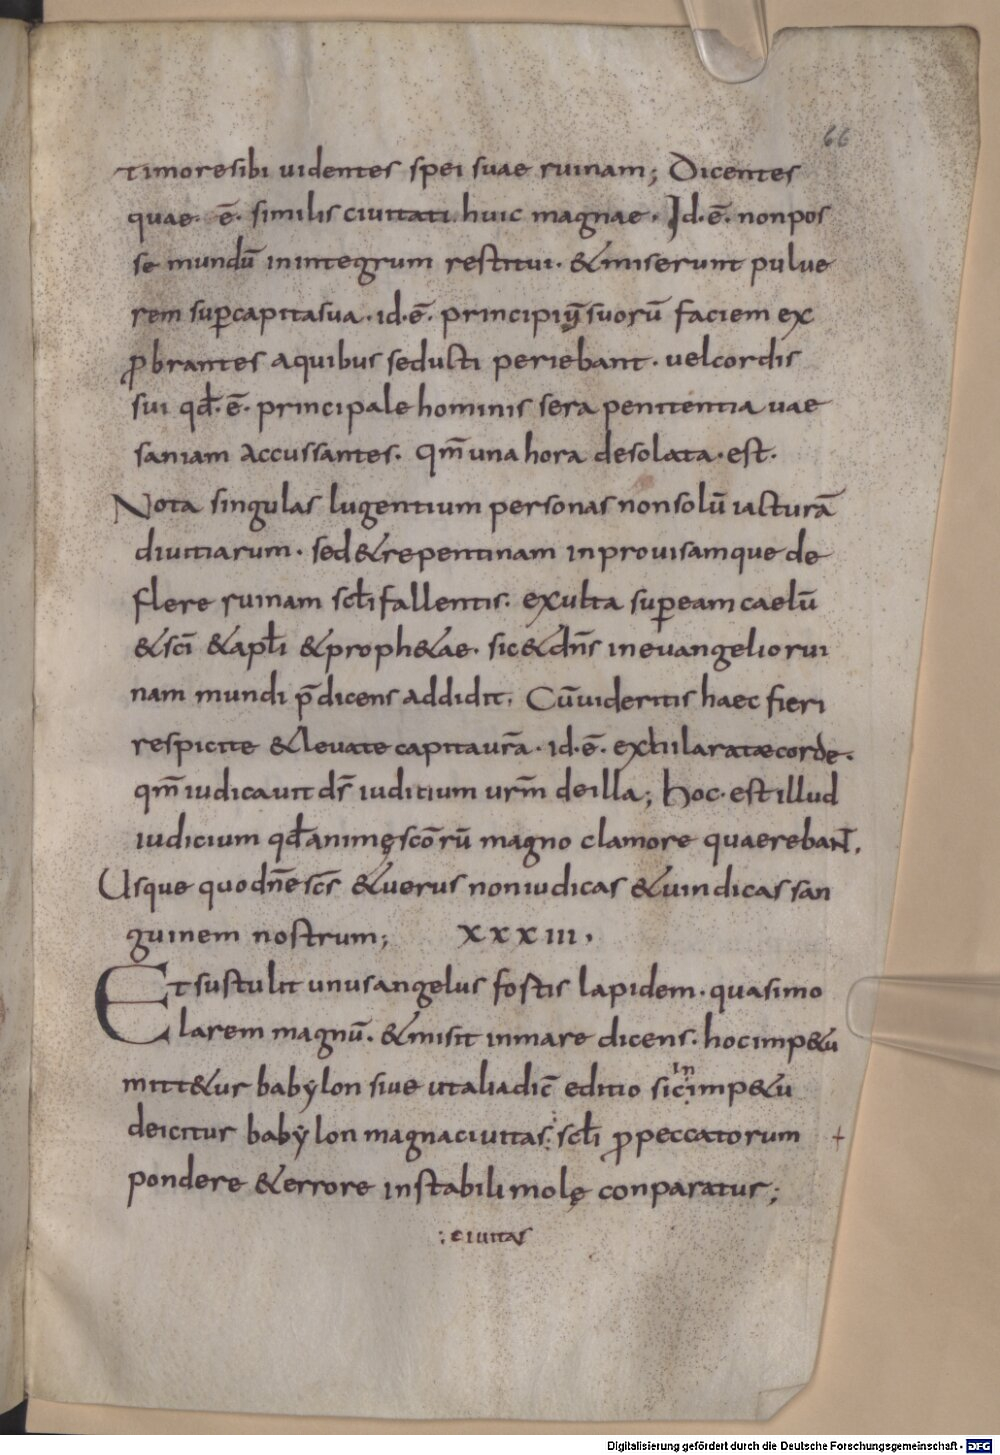 66
timore sibi uidentes spei suae ruinam; Dicentes
quae· ē· similis ciuitati huic magnae· Id·ē· nonpos
se mundū inintegrum restitui· &miserunt pulue
rem suꝑcapitasua· id·ē· principiū suorū faciem ex
ꝓbrantes aquibus seducti periebant· uelcordis
sui qđ·ē· principale hominis sera penitentia uae
saniam accussantes· qm̄ una hora desolata·est·
Nota singulas lugentium personas nonsolū iacturā
diuitiarum· sed&repentinam inprouisamque de
flere ruinam scłi fallentis· exulta suꝑeam caelū
&sc̄i &apłi &proph&ae· sic&dn̄s ineuangelio rui
nam mundi p̄dicens addidit· Cūuideritis haec fieri
respicite &leuate capitaur̄a· id·ē· exhilaratæcorde·
qm̄ iudicauit ds̄ iuditium urm̄ deilla; hoc·est illud
iudicium qđ animę scōrū magno clamore quaereban̄t·
Usque quo dn̄e sc̄s &uerus noniudicas &uindicas san
guinem nostrum; xxxiii·
Et sustulit unusangelus fostis lapidem· quasimo
larem magnū· &misit inmare dicens· hocimp&u
mitt&ur babẏlon siue utaliadic̄ editio sic in imp&u
deicitur babẏlon magnaciuitas: scłi ꝓpeccatorum +
pondere &errore instabili molę conparatur;
:ciuitas
Digitalisierung gefördert durch die Deutsche Forschungsgemeinschaft - DFG